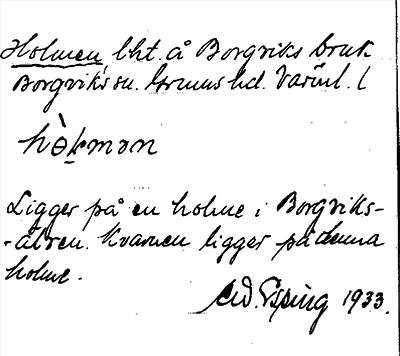 Holmen, lht. å Borgviks bruk
Borgviks sn. Grums hd. Värml. l
hòɭmən
Ligger på en holme i Borgviks-
-älven. Kvarnen ligger på denna
holme.
Edv. Esping 1933.